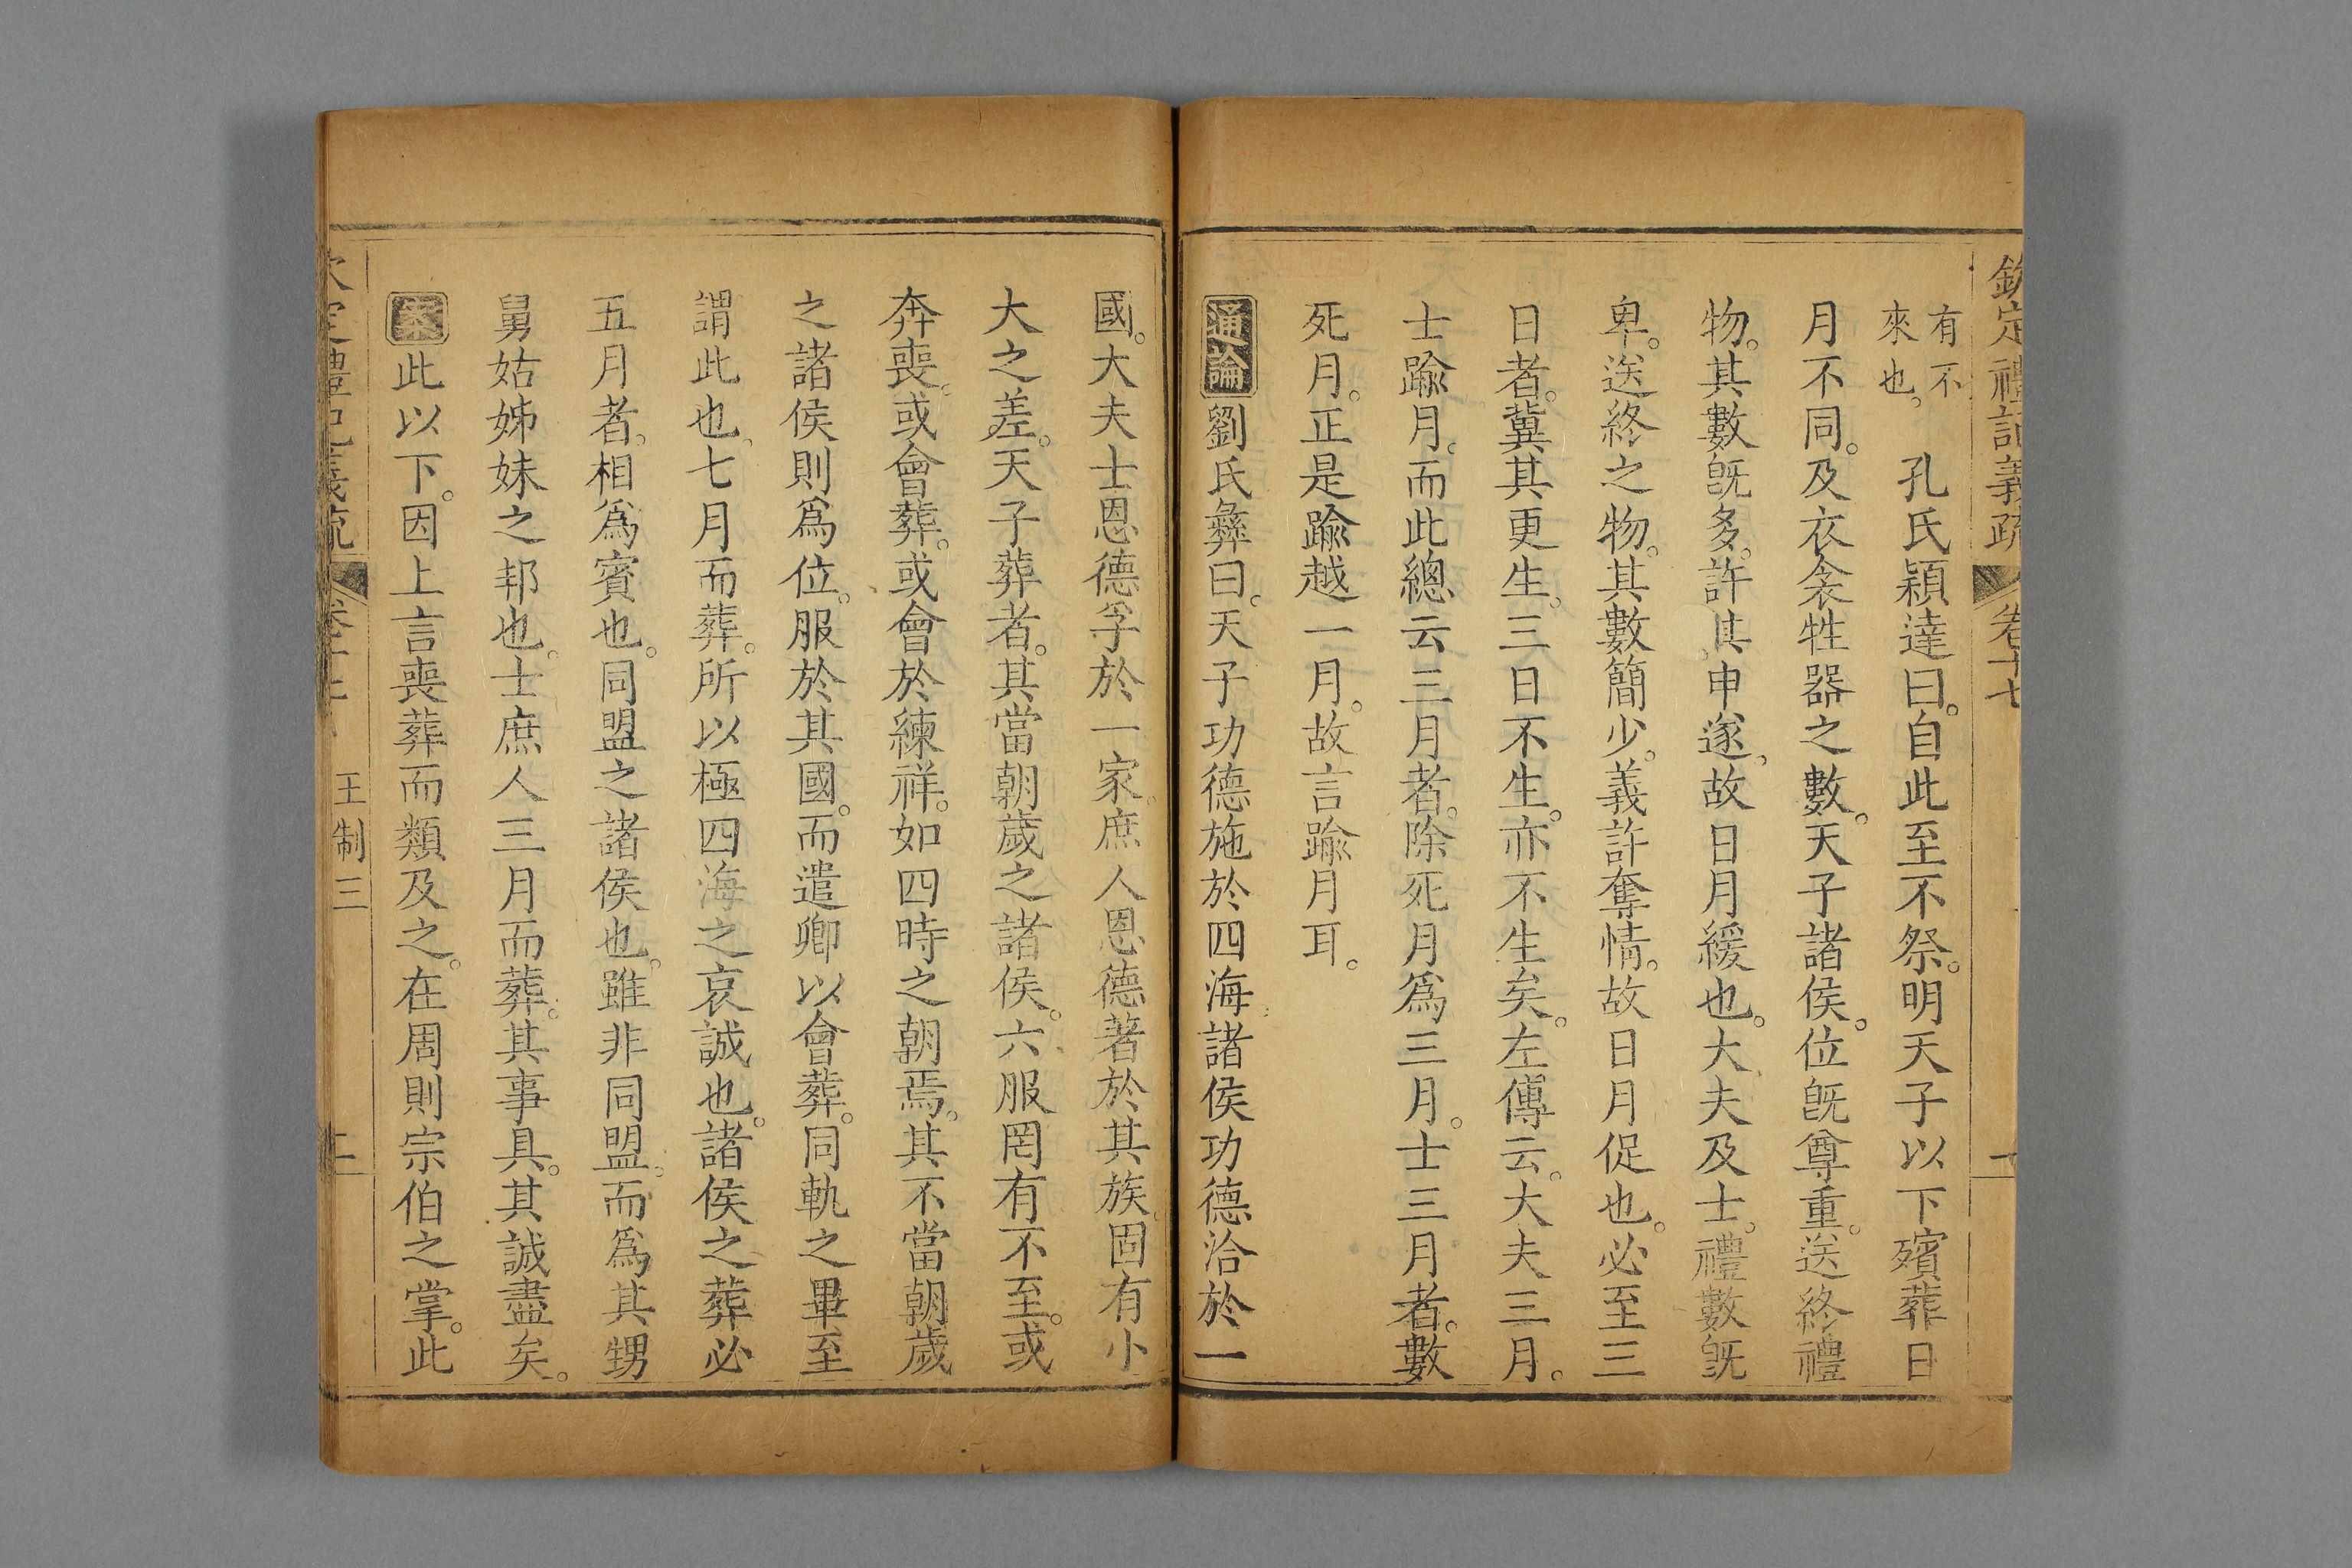 欽定禮記義疏 卷十七
有不
來也。
孔氏穎達曰。自此至不祭。明天子以下殯葬日
月不同。及衣衾牲器之數。天子諸侯。位旣尊重。送終禮
物。其數旣多。許其申遂。故日月緩也。大夫及士。禮數旣
卑。送終之物。其數簡少。義許奪情。故日月促也。必至三
日者。冀其更生。三日不生。亦不生矣。左傳云。大夫三月。
士踰月。而此總云三月者。除死月爲三月。士三月者。數
死月。正是踰越一月。故言踰月耳。
通論劉氏彝曰。天子功德施於四海。諸侯功德洽於一
國。大夫士恩德孚於一家。庶人恩德著於其族。固有小
大之差。天子葬者。其當朝歲之諸侯。六服罔有不至。或
奔喪。或會葬。或會於練祥。如四時之朝焉。其不當朝歲
之諸侯則爲位。服於其國。而遣卿以會葬。同軌之畢至
謂此也。七月而葬。所以極四海之哀誠也。諸侯之葬必
五月者。相爲賓也。同盟之諸侯也。雖非同盟。而爲其甥
舅姑姊妹之邦也。士庶人三月而葬。其事具。其誠盡矣。
案此以下。因上言喪葬而類及之。在周則宗伯之掌。此
王制三